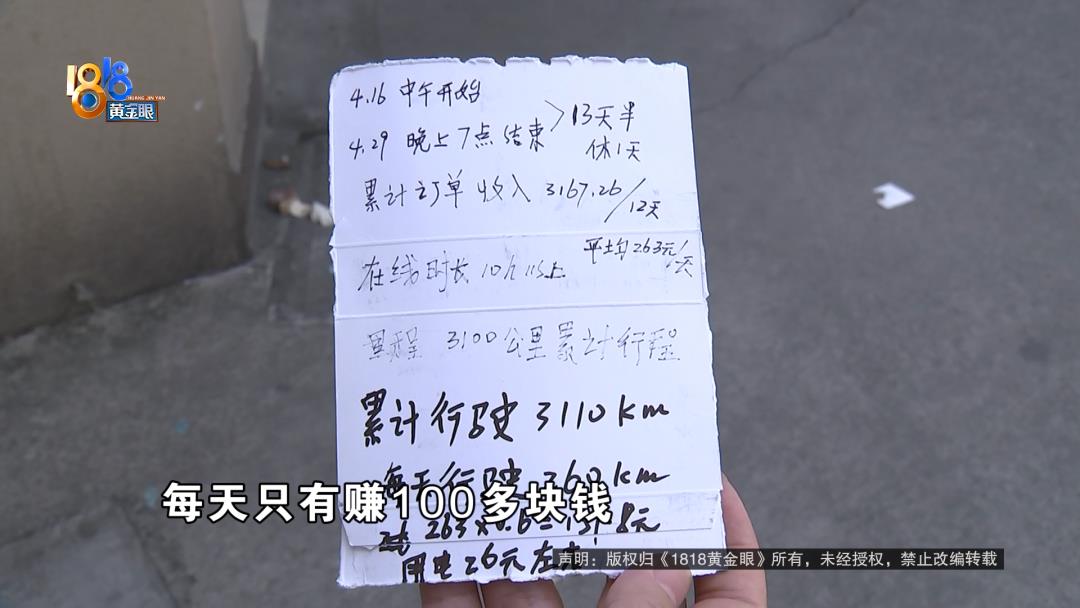 1818
HUANG JIN YAN
黄金眼
4.16 中午开始
4.29 晚上7点结束 > 13天半
休1天
累计订单收入 3167.26/12天
平均263元/天
在线时长10h以上
里程 3100公里累计行程
累计行驶 3110km
每天行驶 260km
263×0.6=157.8元
用电26元左右
每天只有赚100多块钱
声明：版权归《1818黄金眼》所有，未经授权，禁止改编转载